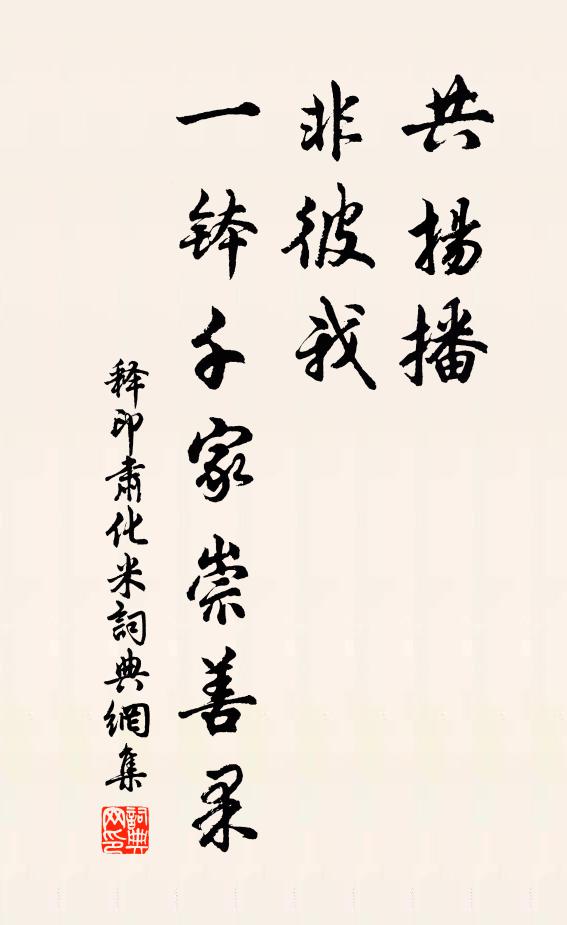 共揚播
非彼我
一鉢千家崇善果
釋印肅化米詞典網集
詞典
网印